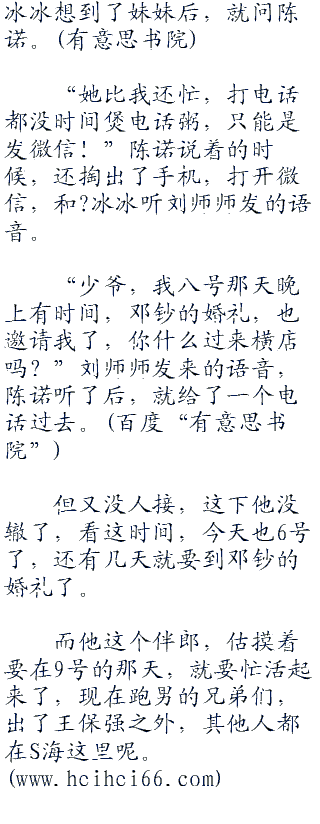 冰冰想到了妹妹后，就问陈
诺。(有意思书院)
“她比我还忙，打电话
都没时间煲电话粥，只能是
发微信！”陈诺说着的时
候，还掏出了手机，打开微
信，和?冰冰听刘师师发的语
音。
“少爷，我八号那天晚
上有时间，邓钞的婚礼，也
邀请我了，你什么过来横店
吗？”刘师师发来的语音，
陈诺听了后，就给了一个电
话过去。(百度“有意思书
院”)
但又没人接，这下他没
辙了，看这时间，今天也6号
了，还有几天就要到邓钞的
婚礼了。
而他这个伴郎，估摸着
要在9号的那天，就要忙活起
来了，现在跑男的兄弟们，
出了王保强之外，其他人都
在S海这里呢。
(www.hcihci66.com)